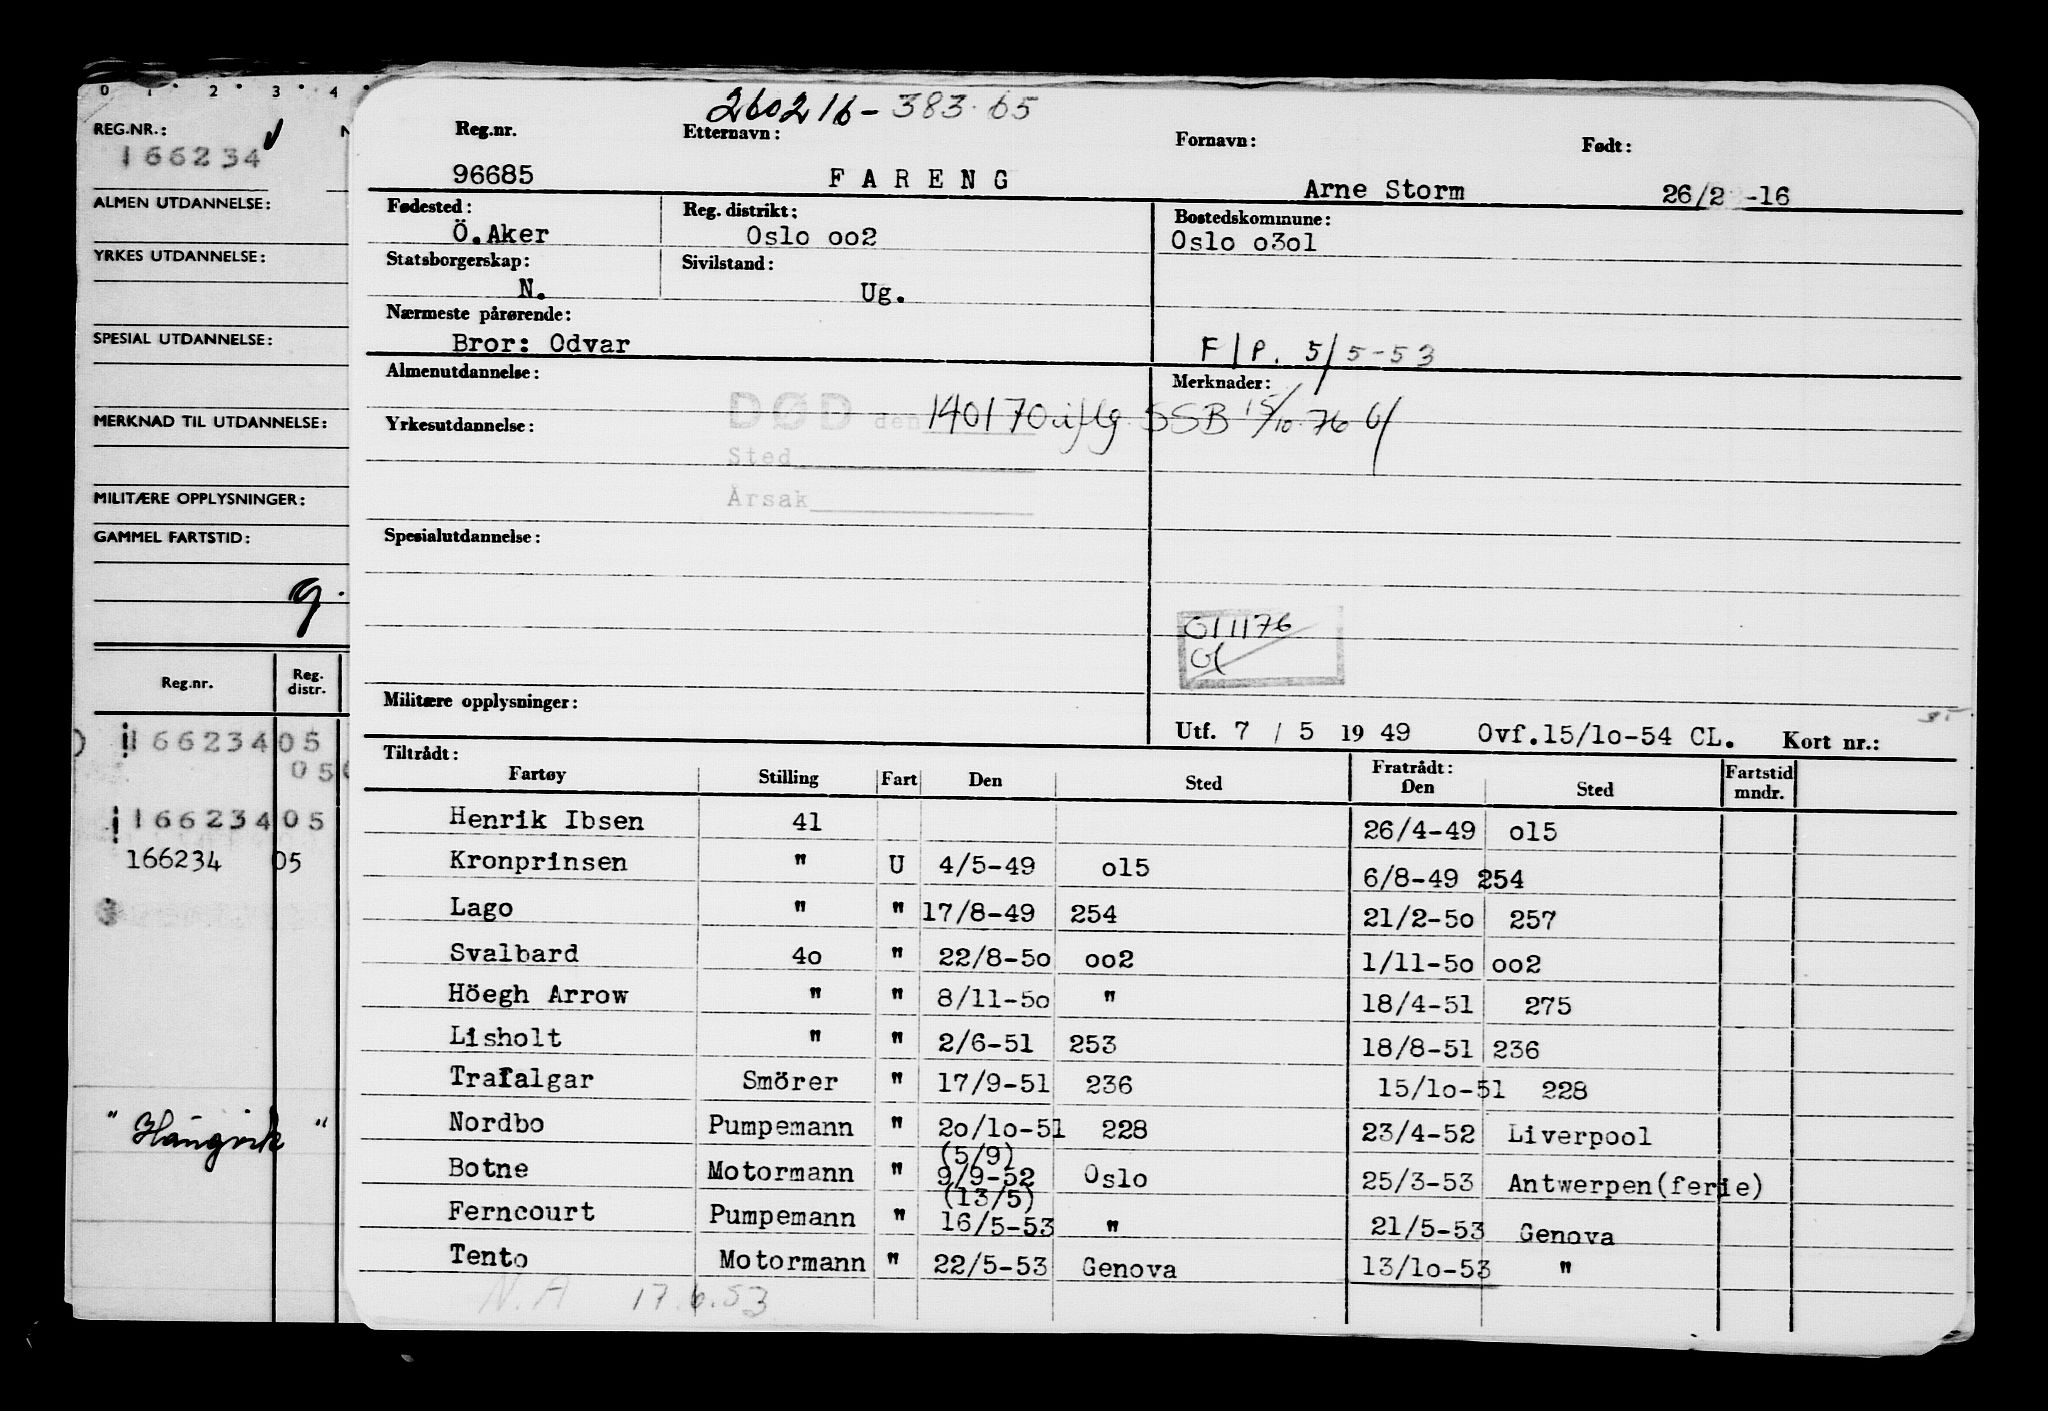 0 1 2 3 4
REG.NR.:
166234
ALMEN UTDANNELSE:
YRKES UTDANNELSE:
SPESIAL UTDANNELSE:
MERKNAD TIL UTDANNELSE:
MILITÆRE OPPLYSNINGER:
GAMMEL FARTSTID:
9.
Reg.nr. Reg. distr.
166234 05
05
166234 05
166234 05
260216-383.65
Reg.nr. Etternavn: Fornavn: Født:
96685 FARENG Arne Storm 26/2 -16
Fødested: Reg. distrikt: Bostedskommune:
Ö.Aker Oslo oo2 Oslo o3o1
Statsborgerskap: Sivilstand:
N. Ug.
Nærmeste pårørende:
Bror: Odvar F/P. 5/5-53
Almenutdannelse: Merknader:
DØD den 140170 iflg. SSB 15/10 76
Yrkesutdannelse:
Sted
Årsak
Spesialutdannelse:
011176
Militære opplysninger:
Utf. 7 / 5 19 49 Ovf.15/1o-54 CL. Kort nr.:
Tiltrådt: Fratrådt: Fartstid
Fartøy Stilling Fart Den Sted Den Sted mndr.
Henrik Ibsen 41 26/4-49 o15
Kronprinsen " U 4/5-49 o15 6/8-49 254
Lago " " 17/8-49 254 21/2-5o 257
Svalbard 4o " 22/8-5o oo2 1/11-5o oo2
Höegh Arrow " " 8/11-5o " 18/4-51 275
Lisholt " " 2/6-51 253 18/8-51 236
Trafalgar Smörer " 17/9-51 236 15/1o-51 228
Nordbo Pumpemann " 2o/1o-51 228 23/4-52 Liverpool
(5/9)
Botne Motormann " 9/9-52 Oslo 25/3-53 Antwerpen(ferie)
(13/5)
Ferncourt Pumpemann " 16/5-53 " 21/5-53 Genova
Tento Motormann " 22/5-53 Genova 13/1o-53 "
N.A 17.6.53